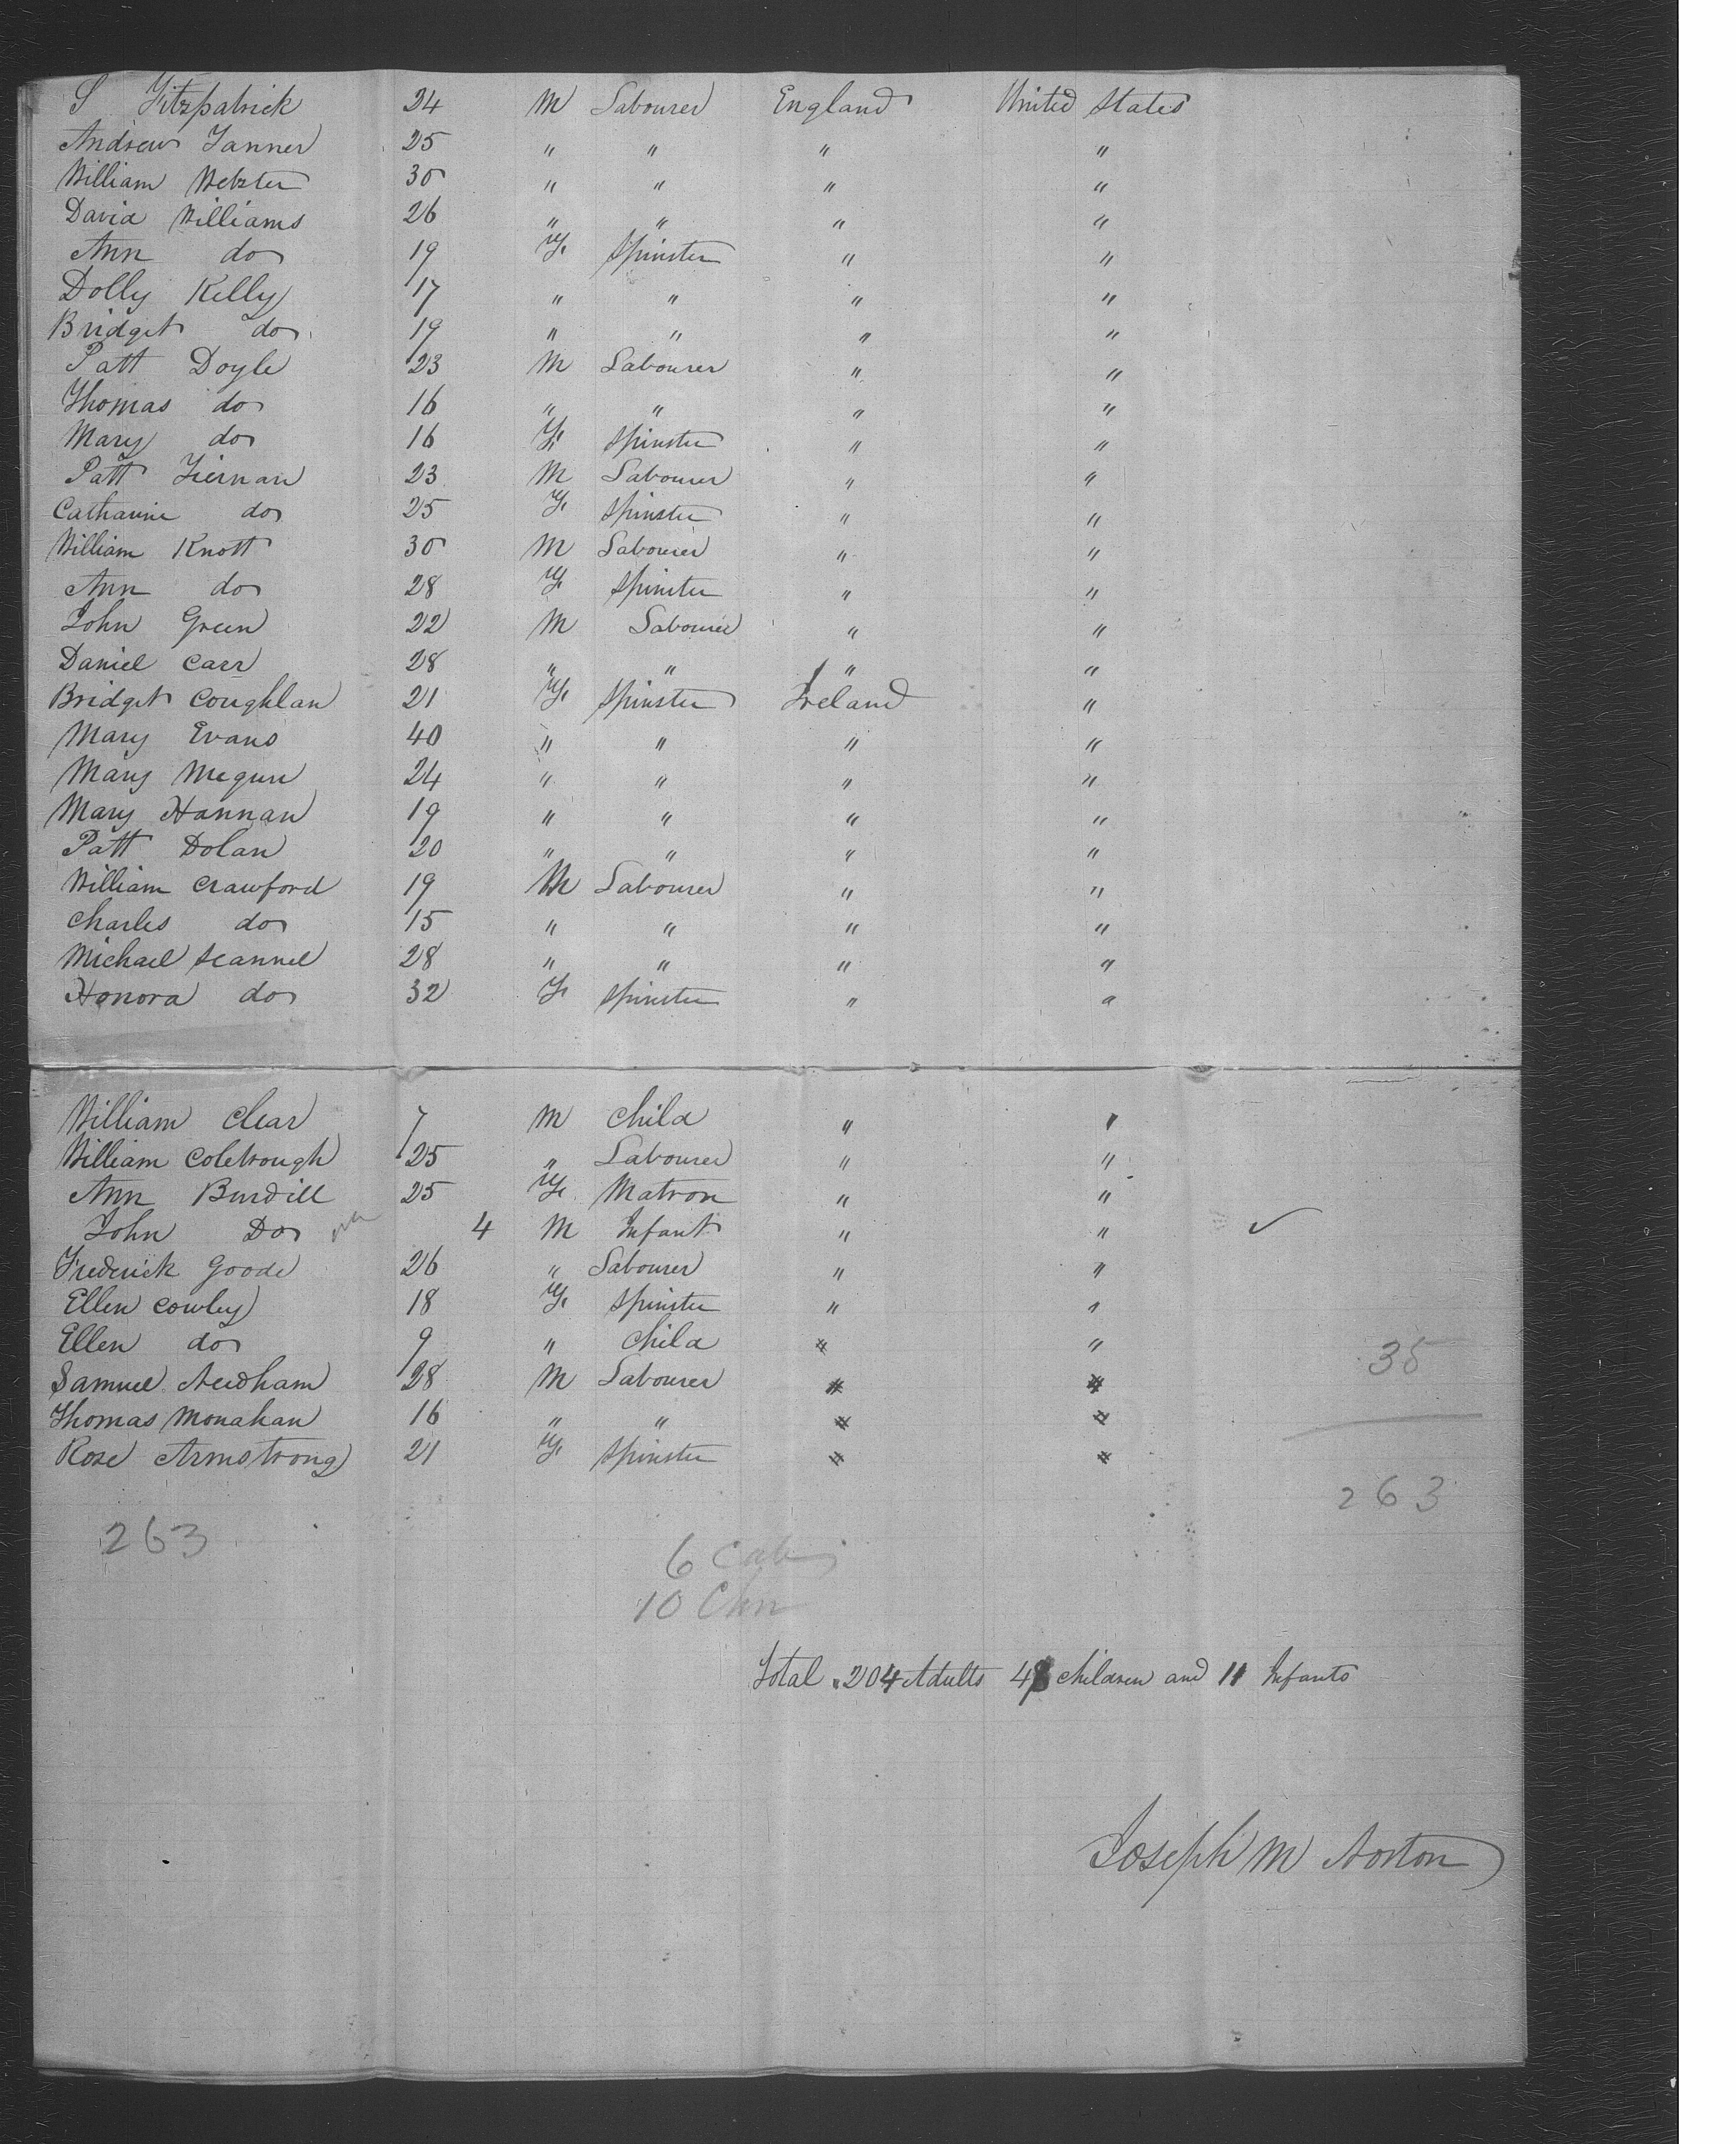 S Fitzpatrick 24 M Labourer England United States
Andrew Tanner 25 " " " "
William Webster 30 " " " "
David Williams 26 " " " "
Ann do 19 F. Spinster " "
Dolly Kelly 17 " " " "
Bridget do 19 " " " "
Patt Doyle 23 M Labourer " "
Thomas do 16 " " " "
Mary do 16 F. Spinster " "
Patt Tiernan 23 M Labourer " "
Catharine do 25 F. Spinster " "
William Knott 30 M Labourer " "
Ann do 28 F Spinster " "
John Green 22 M Labourer " "
Daniel Carr 28 " " " "
Bridget Coughlan 21 F. Spinster Ireland "
Mary Evans 40 " " " "
Mary Megun 24 " " " "
Mary Hannan 19 " " " "
Patt Dolan 20 " " " "
William Crawford 19 M Labourer " "
Charles do 15 " " " "
Michael Scannel 28 " " " "
Honora do 32 F Spinster " "
William Clear 7 M Child " "
William Colebrough 25 " Labourer " "
Ann Burdill 25 F. Matron " "
John Do 4 M Infant " " ✓
Frederick Goode 26 " Labourer " "
Ellen Cowley 18 F. Spinster " "
Ellen do 9 " Child " "
35
Samuel Needham 28 M Labourer " "
Thomas Monahan 16 " " " "
Rose Armstrong 21 F. Spinster " "
263
263
6 Cab
10 Chn
Total 204 Adults 48 Children and 11 Infants
Joseph M Norton